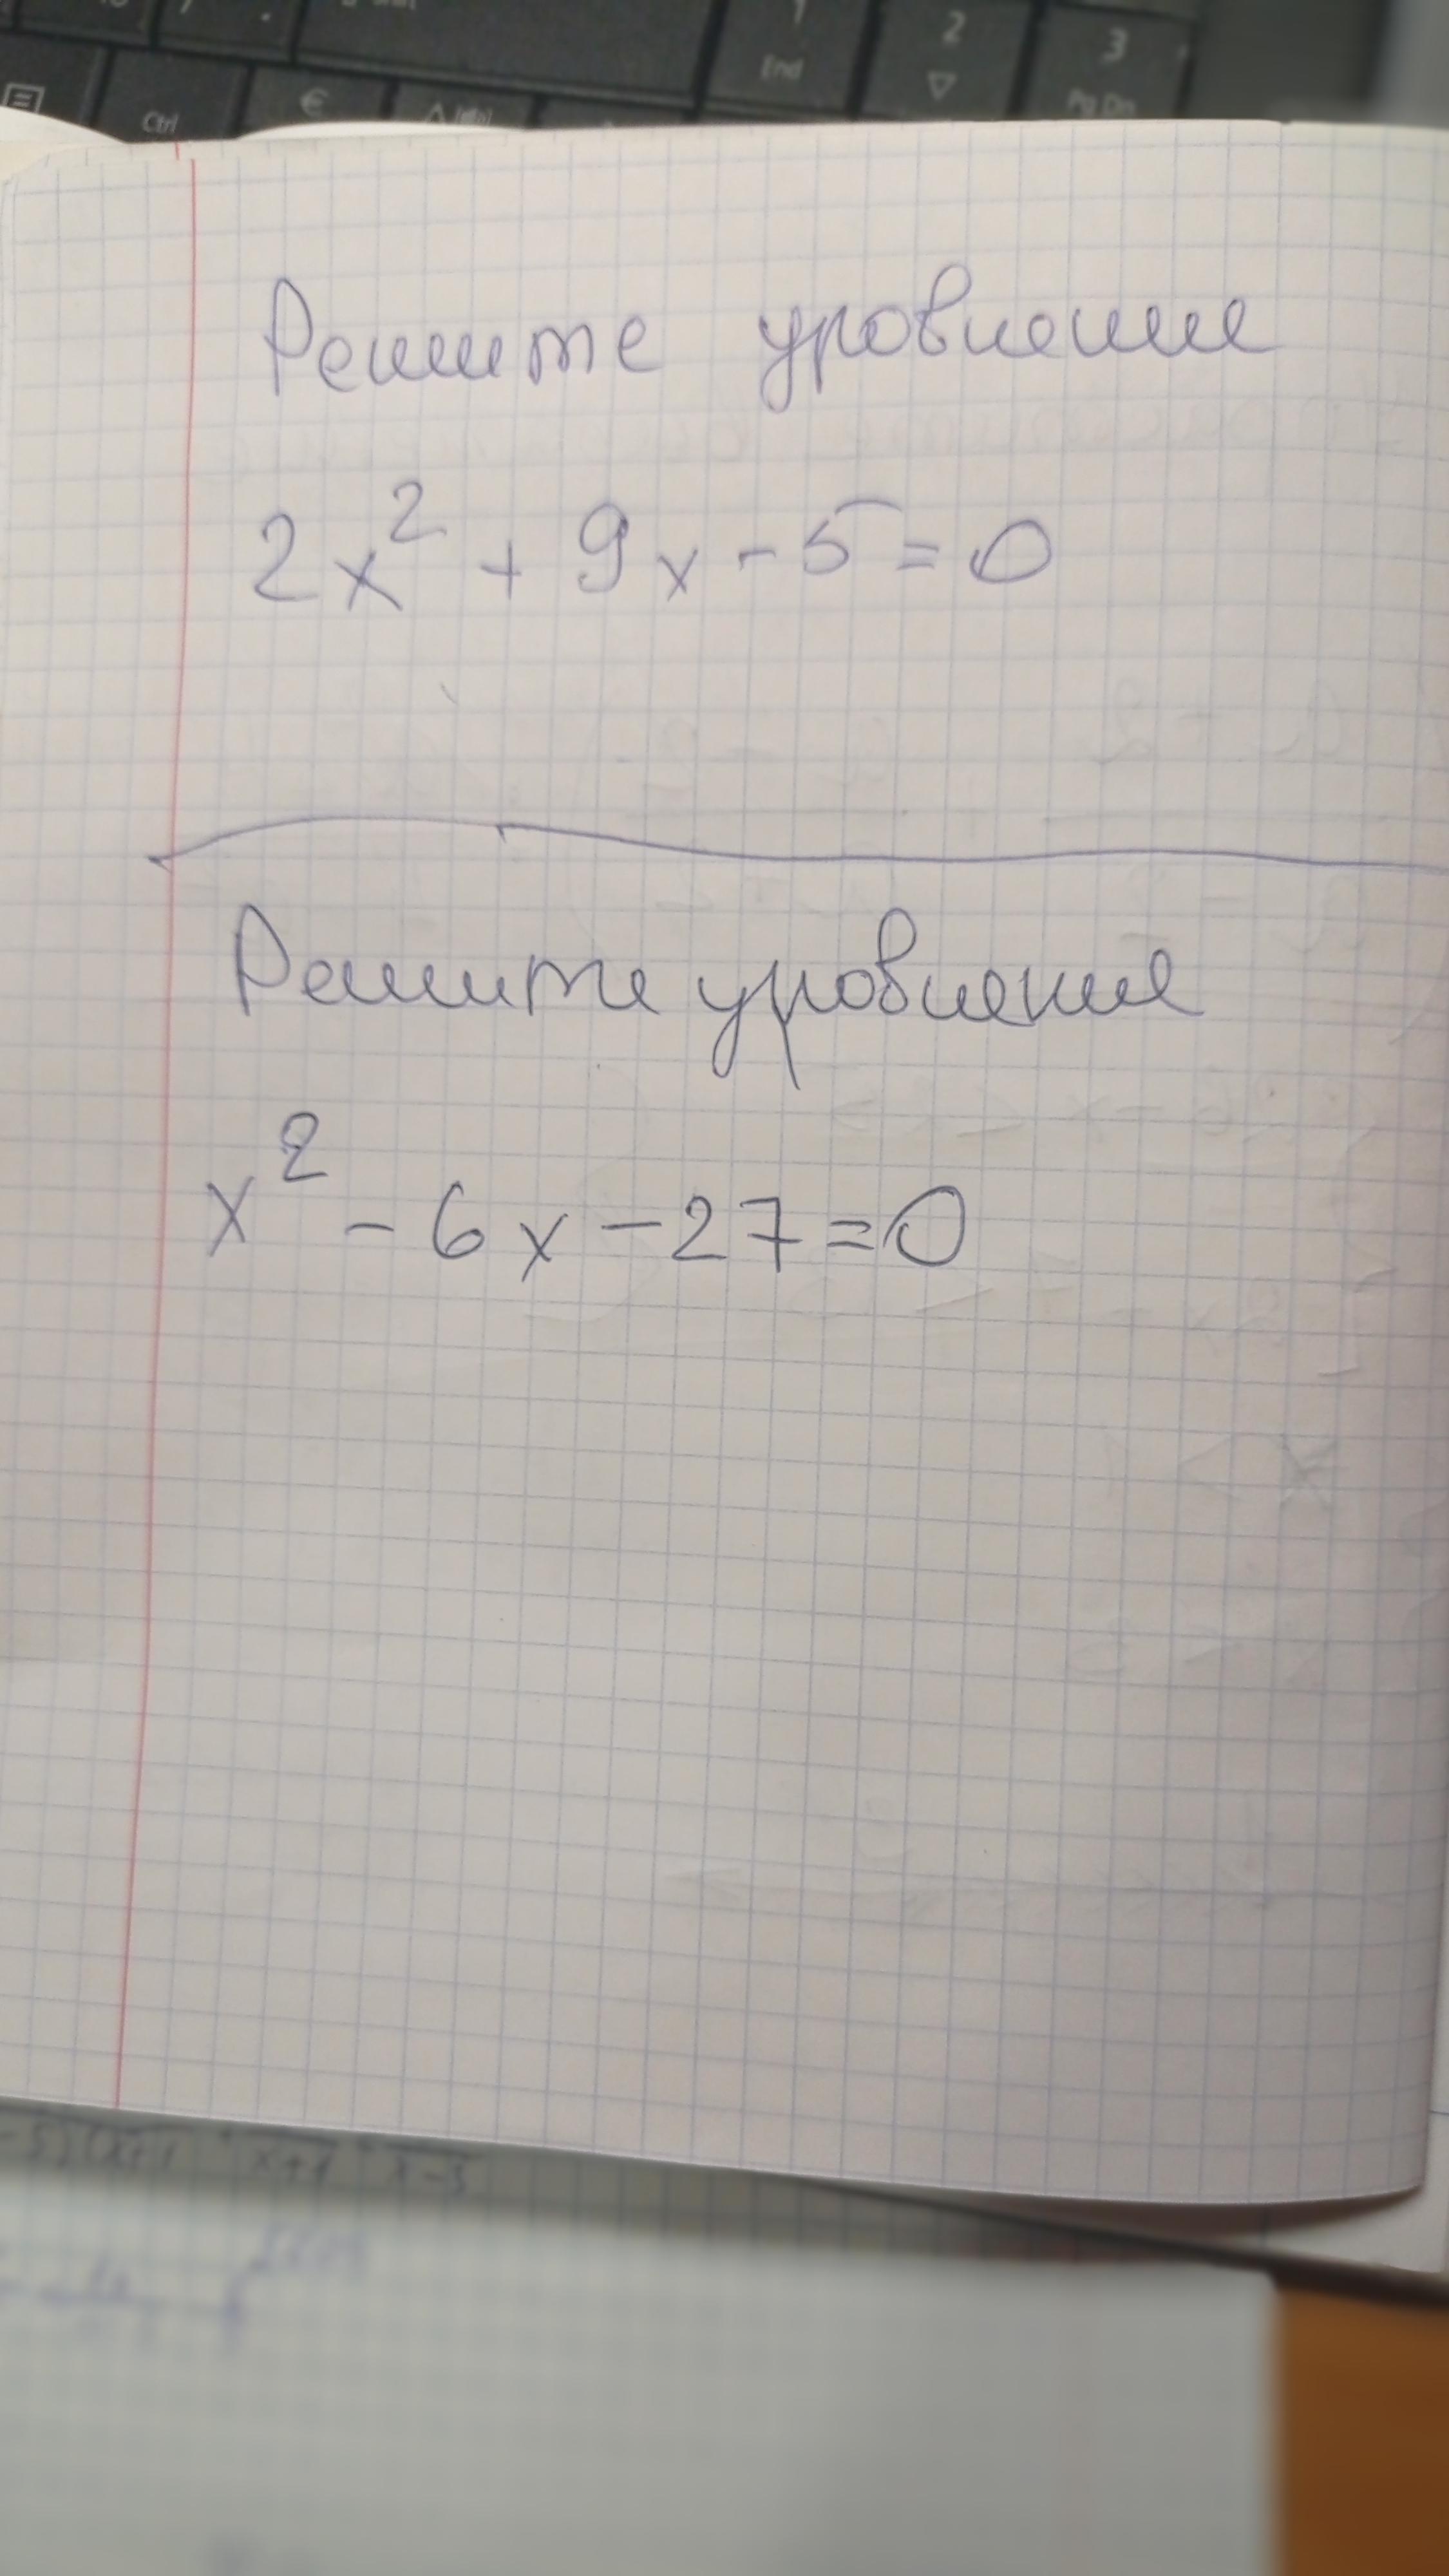 1
2
3
End
Ctrl
€
Решите уровнение
2x² + 9x - 5 = 0
Решите уровнение
x² - 6x - 27 = 0